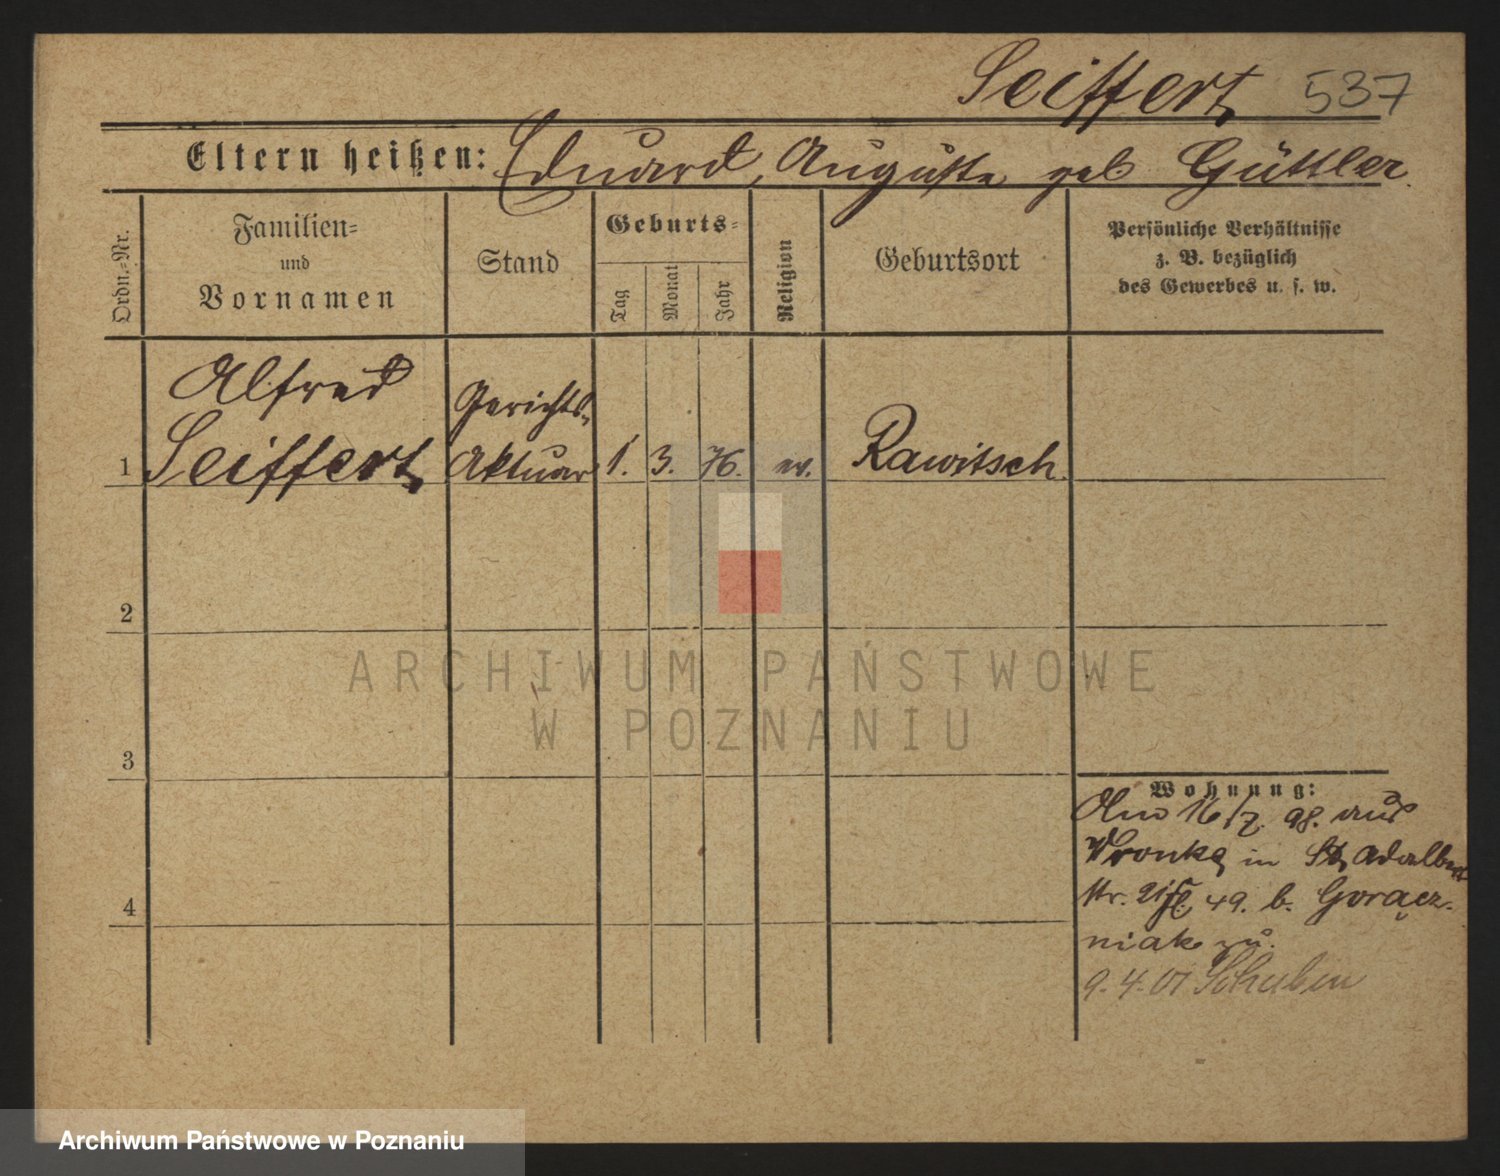 Seiffert 537
Eltern heißen: Eduard, Auguste geb Güttler.
Ordn.-Nr.
Familien-
und
Vornamen
Stand
Geburts-
Tag
Monat
Jahr
Religion
Geburtsort
Persönliche Verhältnisse
z. B. bezüglich
des Gewerbes u. s. w.
Alfred
Gerichts-
1 Seiffert Aktuar 1. 3. 76. ev. Rawitsch.
2
3
4
Wohnung:
16/7. 98. aus
Wronke in St. Adalbert
str. 49. b. Goracz-
niak zu.
9.4.01 Schubin
ARCHIWUM PAŃSTWOWE
W POZNANIU
Archiwum Państwowe w Poznaniu